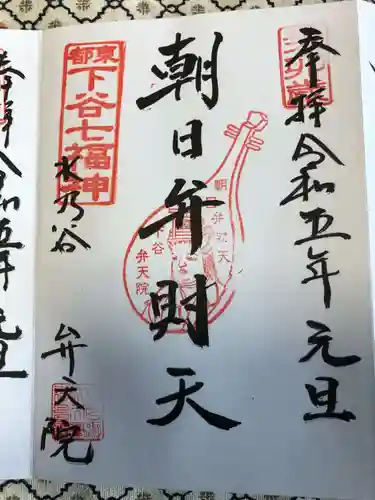 奉拝 令和五年 元旦
朝日弁財天
朝日弁財天
下谷
弁天院
東都
下谷七福神
水乃谷
弁天院
奉拝 令和五年 元旦